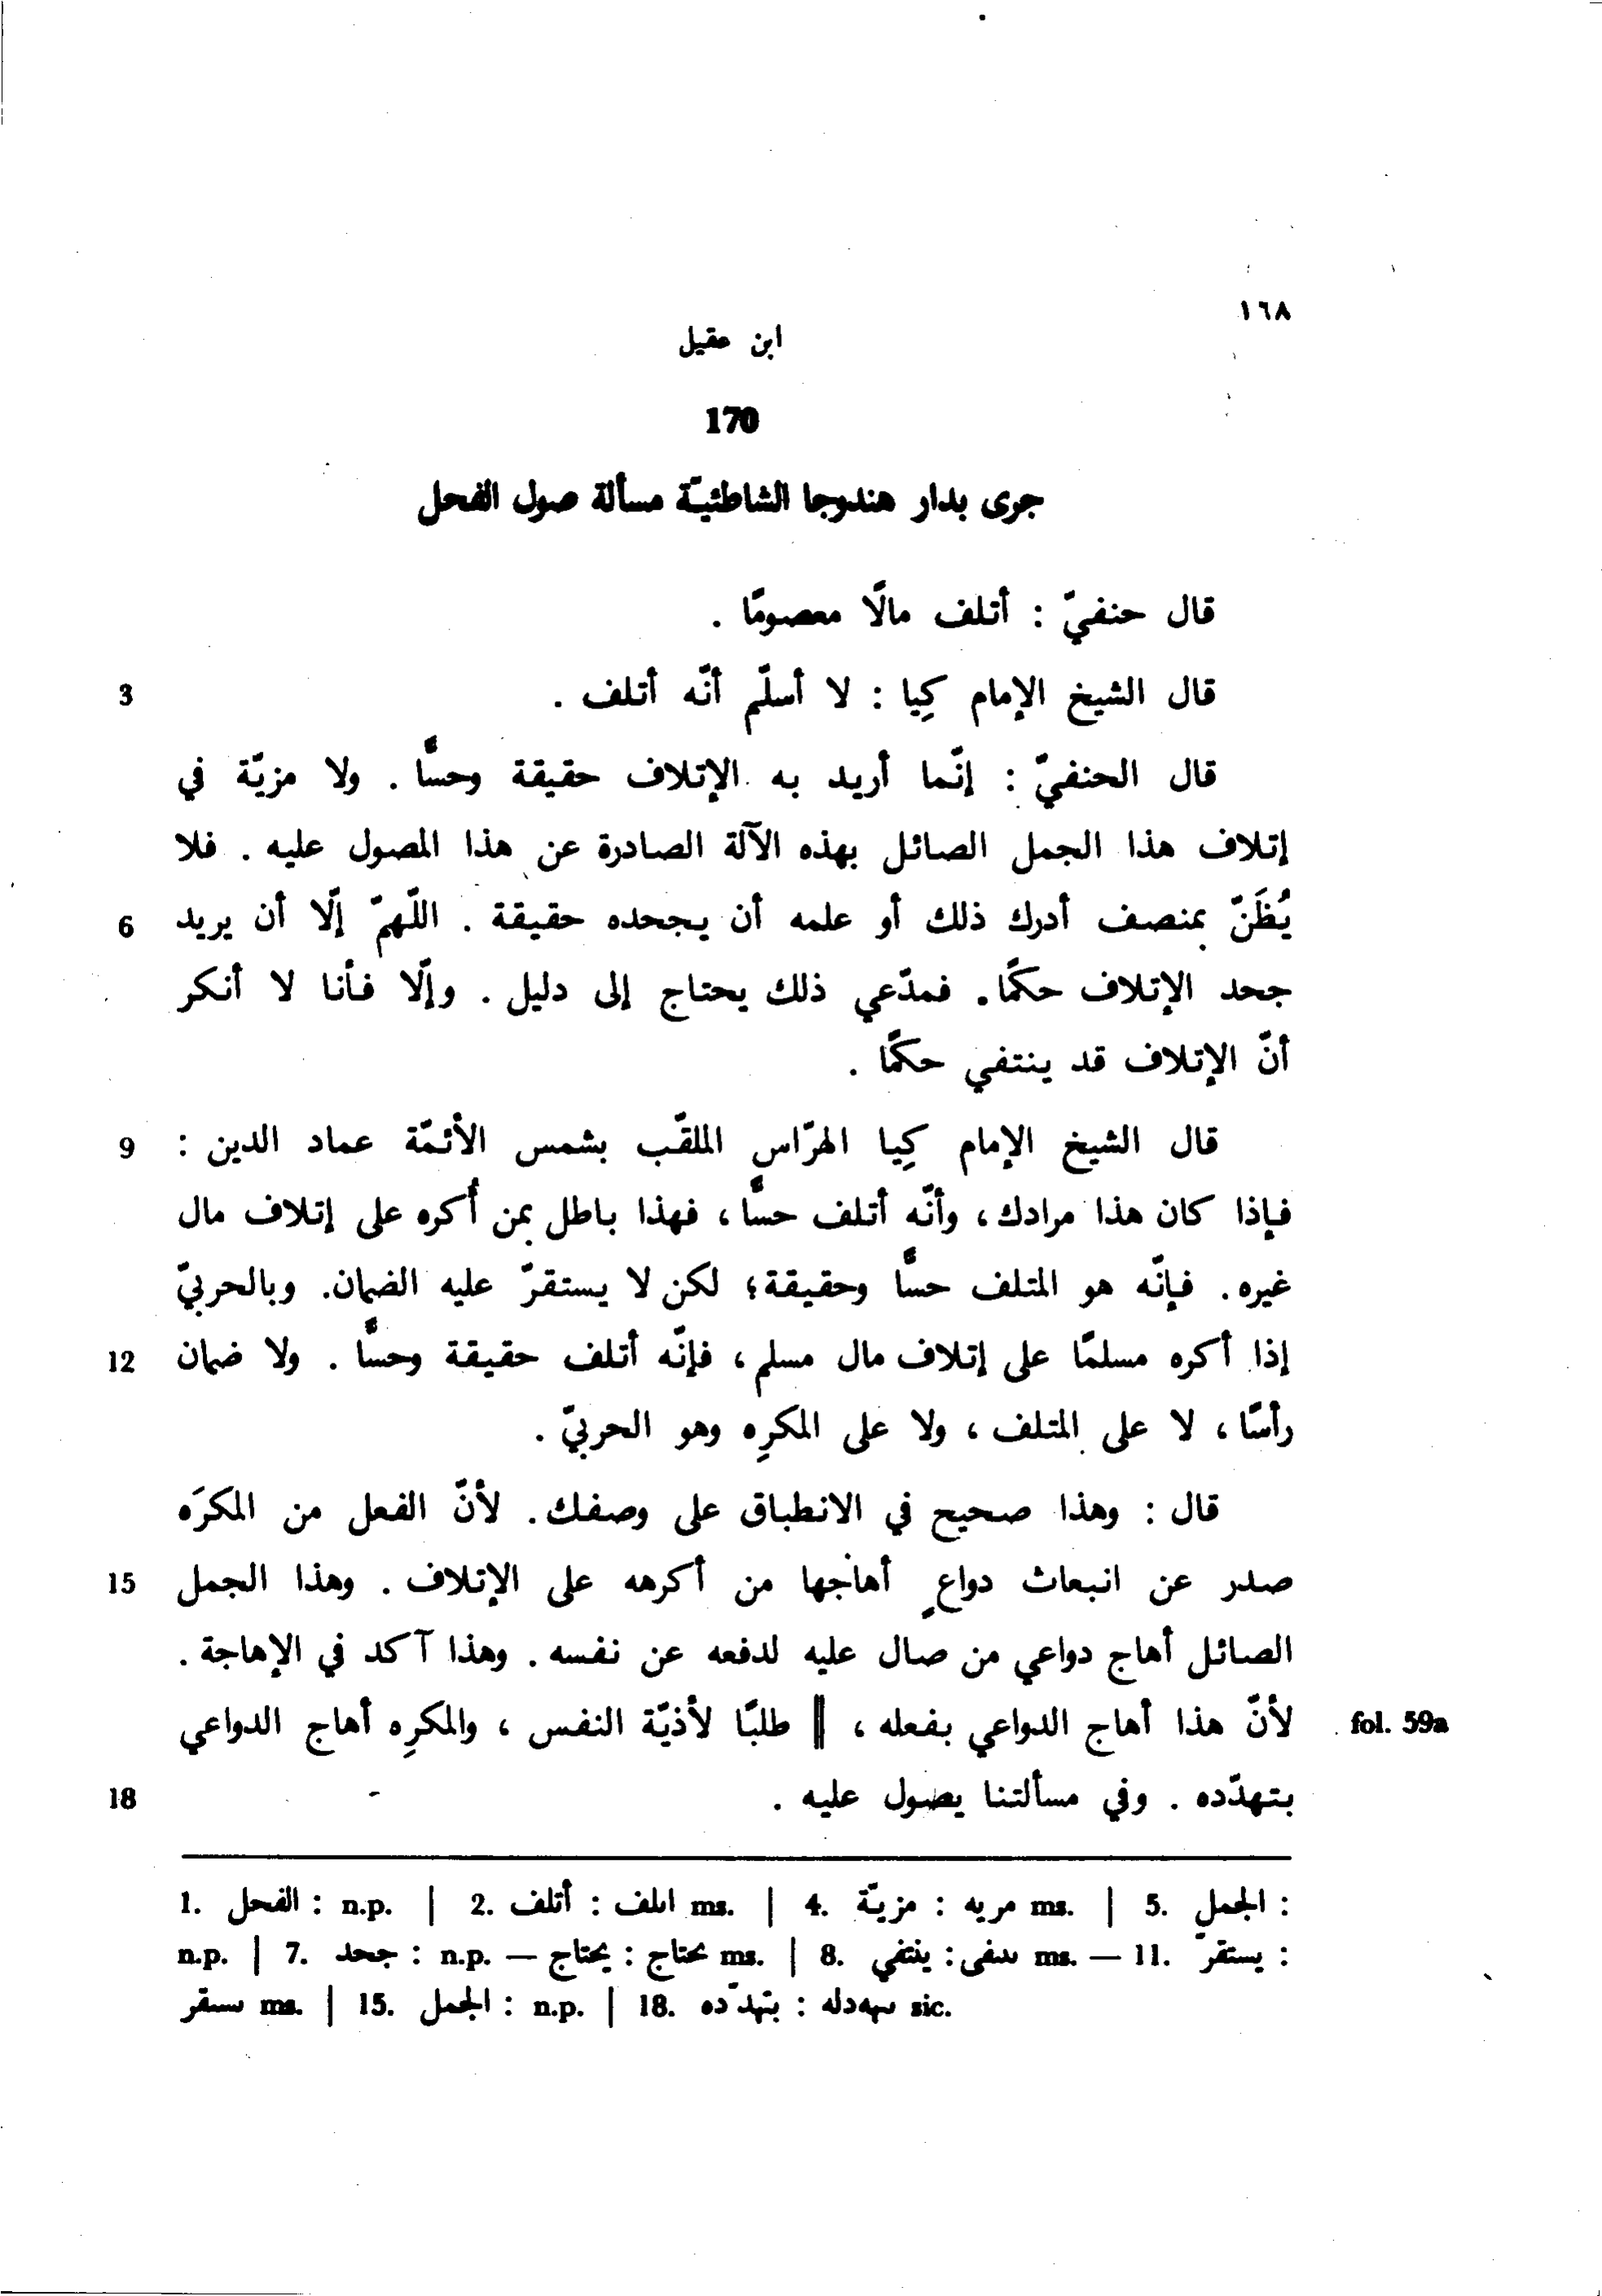 ١٦٨
ابن عقيل
170
جرى بدار هندوجا الشاطئيّة مسألة صول الفحل
قال حنفيّ : أتلف مالًا معصومًا .
قال الشيخ الإمام كِيا : لا أسلّم أنّه أتلف . 3
قال الحنفيّ : إنّما أريد به الإتلاف حقيقة وحسًّا . ولا مزيّة في
إتلاف هذا الجمل الصائل بهذه الآلة الصادرة عن هذا المصول عليه . فلا
يُظَنّ بمنصف أدرك ذلك أو علمه أن يجحده حقيقة . اللّهمّ إلّا أن يريد 6
جحد الإتلاف حكمًا . فمدّعي ذلك يحتاج إلى دليل . وإلّا فأنا لا أنكر
أنّ الإتلاف قد ينتفي حكمًا .
قال الشيخ الإمام كِيا الهرّاسي الملقّب بشمس الأئمّة عماد الدين : 9
فإذا كان هذا مرادك ، وأنّه أتلف حسًّا ، فهذا باطل بمن أُكره على إتلاف مال
غيره . فإنّه هو المتلف حسًّا وحقيقة ؛ لكن لا يستقرّ عليه الضمان . وبالحربيّ
إذا أكره مسلمًا على إتلاف مال مسلم ، فإنّه أتلف حقيقة وحسًّا . ولا ضمان 12
رأسًا ، لا على المتلف ، ولا على المكرِه وهو الحربيّ .
قال : وهذا صحيح في الانطباق على وصفك . لأنّ الفعل من المكرَه
صدر عن انبعاث دواعٍ أهاجها من أكرهه على الإتلاف . وهذا الجمل 15
الصائل أهاج دواعي من صال عليه لدفعه عن نفسه . وهذا آكد في الإهاجة .
لأنّ هذا أهاج الدواعي بفعله ، || طلبًا لأذيّة النفس ، والمكرِه أهاج الدواعي fol. 59a
بتهدّده . وفي مسألتنا يصول عليه . 18
1. الفحل : n.p. | 2. أتلف : اىلف ms. | 4. مزيّة : مريه ms. | 5. الجمل :
n.p. | 7. جحد : n.p. — يحتاج : ىحتاج ms. | 8. ينتفي : ىىىفى ms. — 11. يستقرّ :
ىسىقر ms. | 15. الجمل : n.p. | 18. بتهدّده : ىىهدله sic.